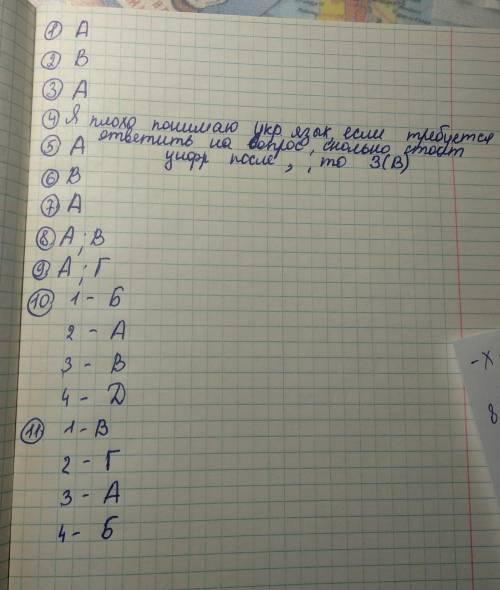 ① А
② В
③ А
④ Я плохо понимаю укр язык, если требуется
ответить на вопрос, сколько стоит
цифр после , , то 3(В)
⑤ А
⑥ В
⑦ А
⑧ А; В
⑨ А; Г
⑩ 1 - Б
2 - А
3 - В
4 - Д
⑪ 1 - В
2 - Г
3 - А
4 - Б
-х
8